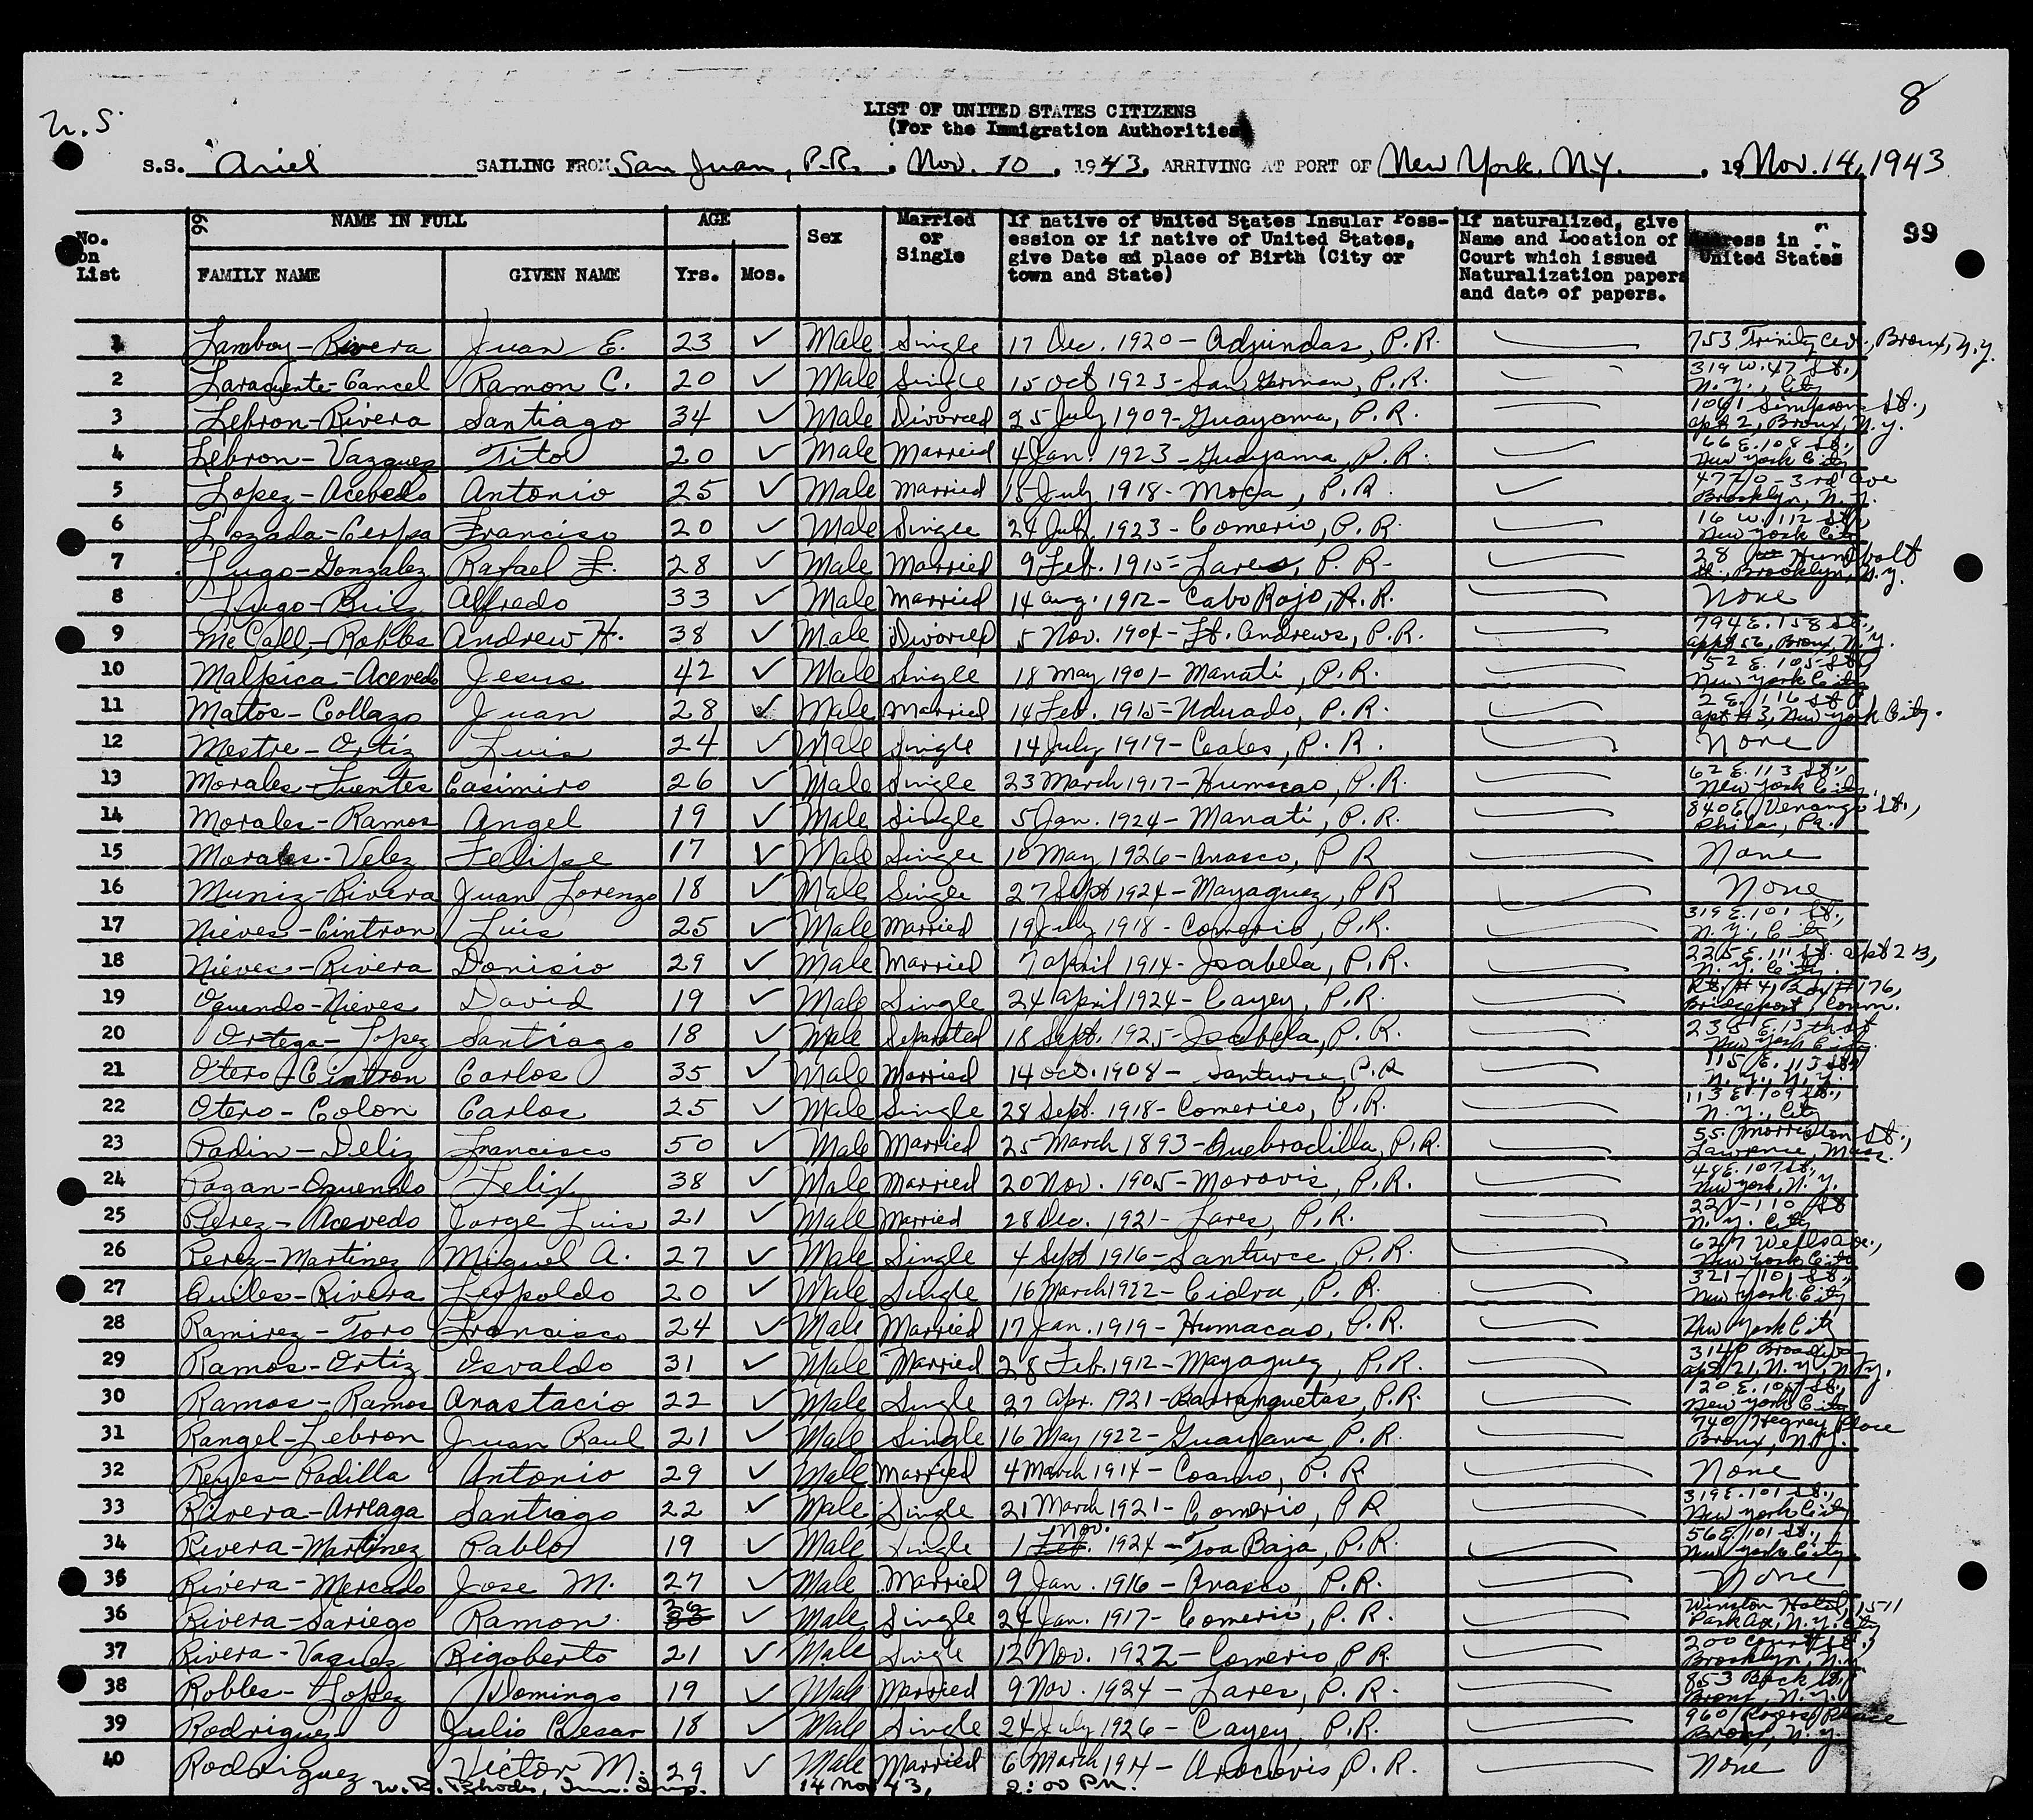 U.S.
8
LIST OF UNITED STATES CITIZENS
(For the Immigration Authorities
S.S. Ariel SAILING FROM San Juan, P.R., Nov. 10, 1943, ARRIVING AT PORT OF New York, N.Y., 19 Nov. 14, 1943
99
99
No. on List
NAME IN FULL
FAMILY NAME GIVEN NAME
AGE
Yrs. Mos.
Sex
Married or Single
If native of United States Insular Possession or if native of United States, give Date and place of Birth (City or town and State)
If naturalized, give Name and Location of Court which issued Naturalization papers and date of papers.
Address in United States
1 Lamboy-Rivera Juan E. 23 ✓ Male Single 17 Dec. 1920 - Adjundas, P.R. 753 Trinity Ave., Bronx, N.Y.
2 Laracuente-Cancel Ramon C. 20 ✓ Male Single 15 Oct 1923 - San German, P.R. 319 W. 47 St., N.Y., City
3 Lebron-Rivera Santiago 34 ✓ Male Divorced 25 July 1909 - Guayama, P.R. 1061 Simpson St., apt 2, Bronx, N.Y.
4 Lebron-Vazquez Tito 20 ✓ Male Married 4 Jan. 1923 - Guayama, P.R. 66 E. 108 St., New York City
5 Lopez-Acebedo Antonio 25 ✓ Male Married 15 July 1918 - Moca, P.R. 4720 - 3rd Ave Brooklyn, N.Y.
6 Lozada-Cerpa Francisco 20 ✓ Male Single 24 July 1923 - Comerio, P.R. 16 W. 112 St., New York City
7 Lugo-Gonzalez Rafael F. 28 ✓ Male Married 9 Feb. 1915 - Lares, P.R. 28 Humbolt St., Brooklyn, N.Y.
8 Lugo- Alfredo 33 ✓ Male Married 14 Aug. 1912 - Cabo Rojo, P.R. None
9 McCall-Robles Andrew H. 38 ✓ Male Divorced 5 Nov. 1904 - St. Andrews, P.R. 794 E. 158 St., appt 56, Bronx, N.Y.
10 Malpica-Acevedo Jesus 42 ✓ Male Single 18 May 1901 - Manati, P.R. 52 E. 105 St., New York City
11 Mattos-Collazo Juan 28 ✓ Male Married 14 Feb. 1915 - Utuado, P.R. 2 E. 116 St apt #3, New York City.
12 Mestre-Ortiz Luis 24 ✓ Male Single 14 July 1919 - Ceales, P.R. None
13 Morales-Fuentes Casimiro 26 ✓ Male Single 23 March 1917 - Humacao, P.R. 62 E. 113 St., New York City
14 Morales-Ramos Angel 19 ✓ Male Single 5 Jan. 1924 - Manati, P.R. 840 E. Venango St., Phila, Pa.
15 Morales-Velez Felipe 17 ✓ Male Single 10 May 1926 - Anasco, P.R None
16 Muniz-Rivera Juan Lorenzo 18 ✓ Male Single 27 Sept 1924 - Mayaguez, P.R None
17 Nieves-Cintron Luis 25 ✓ Male Married 19 July 1918 - Comerio, P.R. 319 E. 101 St., N.Y., City
18 Nieves-Rivera Donisio 29 ✓ Male Married 7 April 1914 - Isabela, P.R. 225 E. 111 St. apt 2B, N.Y. City
19 Oquendo-Nieves David 19 ✓ Male Single 24 April 1924 - Cayey, P.R. Rt. #4, Box #176, Bridgeport, Conn.
20 Ortega-Lopez Santiago 18 ✓ Male Separated 18 Sept. 1925 - Isabela, P.R. 238 E. 13th St New York City.
21 Otero-Cintron Carlos 35 ✓ Male Married 14 Oct. 1908 - Santurce, P.R 115 E. 113 St., N.Y., N.Y.
22 Otero-Colon Carlos 25 ✓ Male Single 28 Sept. 1918 - Comerico, P.R. 113 E. 109 St., N.Y., City
23 Padin-Deliz Francisco 50 ✓ Male Married 25 March 1893 - Quebradilla, P.R. 55 St., Lawrence, Mass.
24 Pagan-Oquendo Felix 38 ✓ Male Married 20 Nov. 1905 - Morovis, P.R. 48 E. 107 St., New York, N.Y.
25 Perez-Acevedo Jorge Luis 21 ✓ Male Married 28 Dec. 1921 - Lares, P.R. 110 St N.Y. City
26 Perez-Martinez Miguel A. 27 ✓ Male Single 4 Sept 1916 - Santurce, P.R. 627 Wells Ave., New York City
27 Quiles-Rivera Leopoldo 20 ✓ Male Single 16 March 1922 - Cidra, P.R. 321 - 101 St., New York City
28 Ramirez-Toro Francisco 24 ✓ Male Married 17 Jan. 1919 - Humacao, P.R. New York City
29 Ramos-Ortiz Osvaldo 31 ✓ Male Married 28 Feb. 1912 - Mayaguez, P.R. 3140 Broadway apt 21, N.Y., N.Y.
30 Ramos-Ramos Anastacio 22 ✓ Male Single 27 Apr. 1921 - Barranquetas, P.R. 120 E. St., New York City
31 Rangel-Lebron Juan Raul 21 ✓ Male Single 16 May 1922 - Guayama, P.R. 740 Place Bronx, N.Y.
32 Reyes-Padilla Antonio 29 ✓ Male Married 4 March 1914 - Coamo, P.R. None
33 Rivera-Arreaga Santiago 22 ✓ Male Single 21 March 1921 - Comerio, P.R 319 E. 101 St., New York City
34 Rivera-Martinez Pablo 19 ✓ Male Single 1 Nov. 1924 - Toa Baja, P.R. 56 E. 101 St., New York City
35 Rivera-Mercado Jose M. 27 ✓ Male Married 9 Jan. 1916 - Anasco, P.R. None
36 Rivera-Sariego Ramon 26 ✓ Male Single 24 Jan. 1917 - Comerio, P.R. Winston Hotel, 1511 Park Ave, N.Y. City
37 Rivera-Vaquez Rigoberto 21 ✓ Male Single 12 Nov. 1922 - Comerio, P.R. 200 Court St., Brooklyn, N.Y.
38 Robles-Lopez Domingo 19 ✓ Male Married 9 Nov. 1924 - Lares, P.R. 853 Beck St., Bronx, N.Y.
39 Rodriguez Julio Cesar 18 ✓ Male Single 24 July 1926 - Cayey, P.R. 960 Rogers Place Bronx, N.Y.
40 Rodriguez Victor M. 29 ✓ Male Married 6 March 1914 - Orocovis, P.R. None
W. R. Rhodes, Imm. Insp. 14 Nov 43, 2:00 P.M.